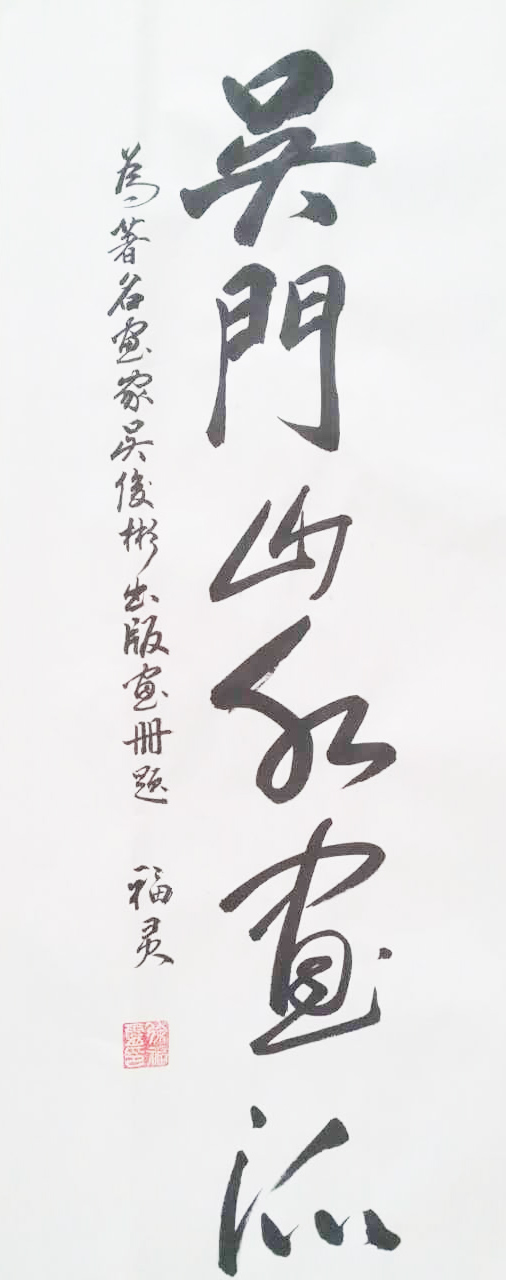 吳門山水畫派
為著名畫家吴俊彬出版畫冊題
福灵